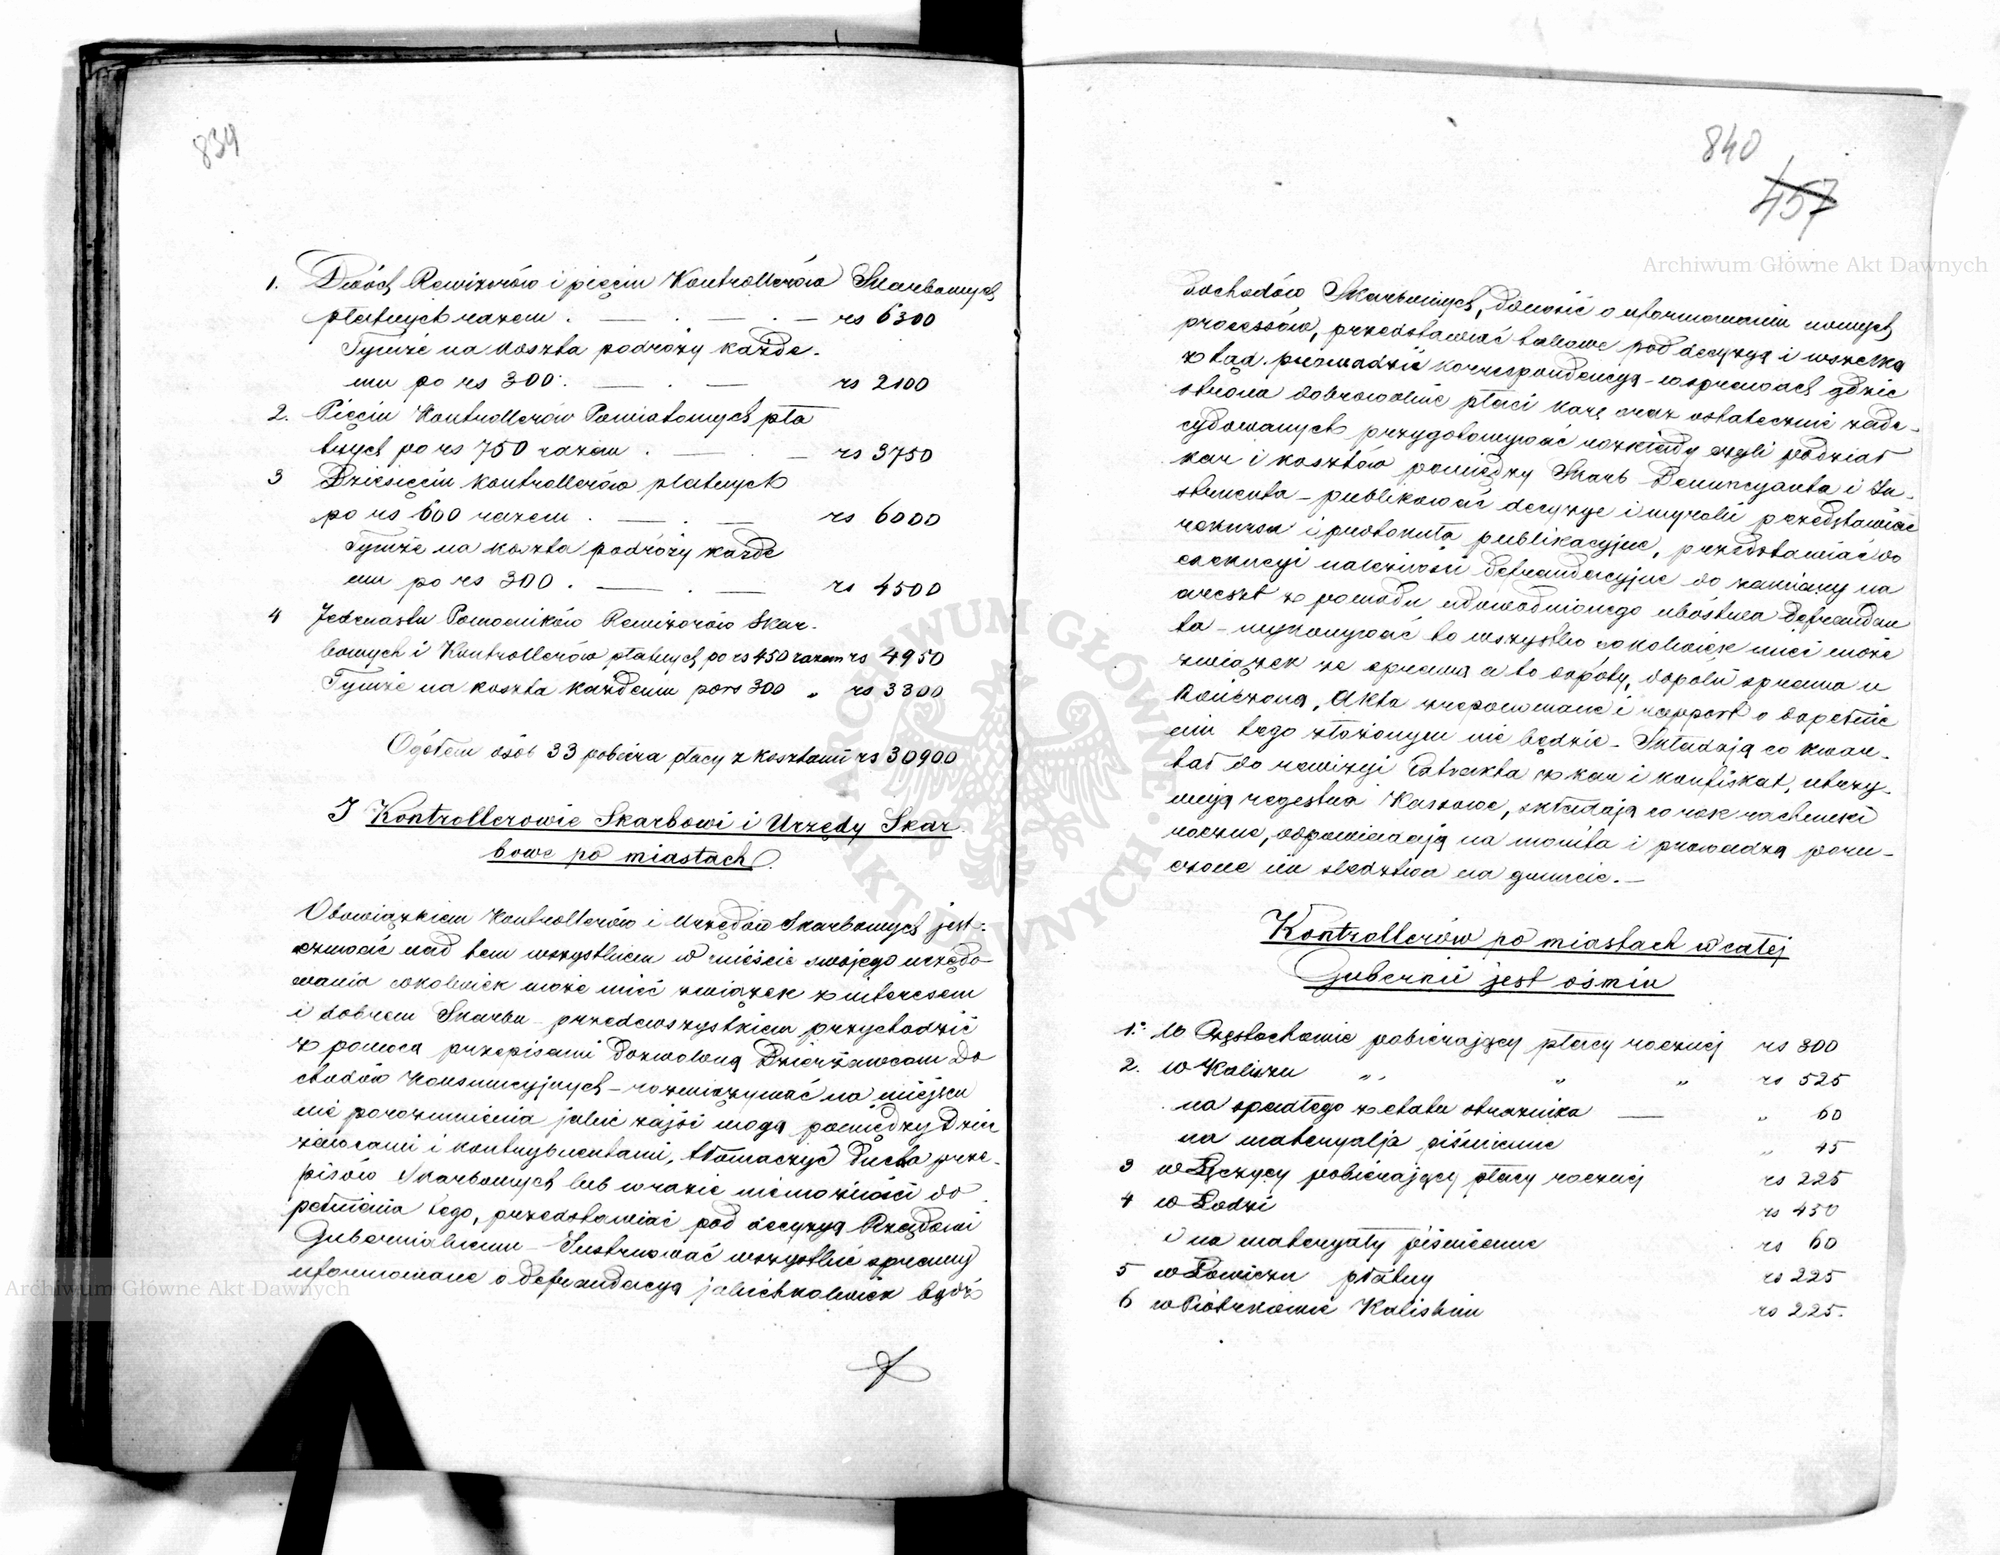 839
1. Dwóch Rewizorów i pięciu Kontrollerów Skarbowych
płatnych razem . — . — . — rs 6300
Tymże na koszta podróży każde-
mu po rs 300. — . — rs 2100
2. Pięciu Kontrollerów Powiatowych pła
tnych po rs 750 razem . — . — rs 3750
3 Dziesięciu kontrollerów płatnych
po rs 600 razem . — . — rs 6000
Tymże na koszta podróży każde
mu po rs 300 . — . — rs 4500
4 Jedenastu Pomocników Rewizorów Skar-
bowych i Kontrollerów płatnych po rs 450 razem rs 4950
Tymże na koszta każdemu po rs 300 „ rs 3300
Ogółem osób 33 pobiera płacy z kosztami rs 30900
J Kontrollerowie Skarbowi i Urzędy Skar
bowe po miastach.
Obowiązkiem Kontrollerów i Urzędów Skarbowych jest:
czuwać nad tem wszystkiem w mieście swojego urzędo-
wania cokolwiek może mieć związek z interesem
i dobrem Skarbu – przedewszystkiem przychodzić
z pomocą przepisami dozwoloną Dzierżawcom Do
chodów Konsumcyjnych – rozwiązywać na miejscu
nie porozumienia jakie zajść mogą pomiędzy Dzier
żawcami i kontrybuentami, tłomaczyć Ducha prze-
pisów Skarbowych lub w razie niemożności do
pełnienia tego, przedstawiać pod decyzyą Rządowi
Gubernialnemu – Instruować wszystkie sprawy
uformowane o defraudacyą jakichkolwiek bądź
840
457
dochodów Skarbowych, donosić o uformowaniu nowych
processów, przedstawiać takowe pod decyzyą i wszelką
z tąd prowadzić korrespondencyą – w sprawach gdzie
strona dobrowolnie płaci karę oraz ostatecznie zade-
cydowanych przygotowywać rozkłady czyli podział
kar i kosztów pomiędzy Skarb Denuncyanta i In-
strumenta – publikować decyzye i wyroki przedstawiać
rekursa i protokuła publikacyjne, przedstawiać do
exekucyi należności defraudacyjne do zamiany na
areszt z powodu udowodnionego ubóstwa Defraudan
ta – wykonywać to wszystko cokolwiek mieć może
związek ze sprawą a to dopóty, dopóki sprawa u
kończoną, Akta zreponowane i rapport o dopełnie
niu tego złożonym nie będzie – Składają co kwar-
tał do rewizyi Extrakta z kar i konfiskat, utrzy-
mują regestra Kassowe, składają co rok rachunki
roczne, odpowiadają na monita i prowadzą poru-
czone im śledztwa na gruncie. —
Kontrollerów po miastach w całej
Gubernii jest ośmiu
1. W Częstochowie pobierający płacy rocznej rs 300
2. w Kaliszu „ „ „ rs 525
na opałtego z etatu strażnika — „ 60
na materyalja piśmienne „ 45
3 w Łęczycy pobierający płacy rocznej rs 225
4 w Łodzi rs 450
i na materyały piśmienne rs 60
5 w Łowiczu płatny rs 225
6 w Piotrkowie Kaliskim rs 225.
Archiwum Główne Akt Dawnych
Archiwum Główne Akt Dawnych
ARCHIWUM GŁÓWNE AKT DAWNYCH